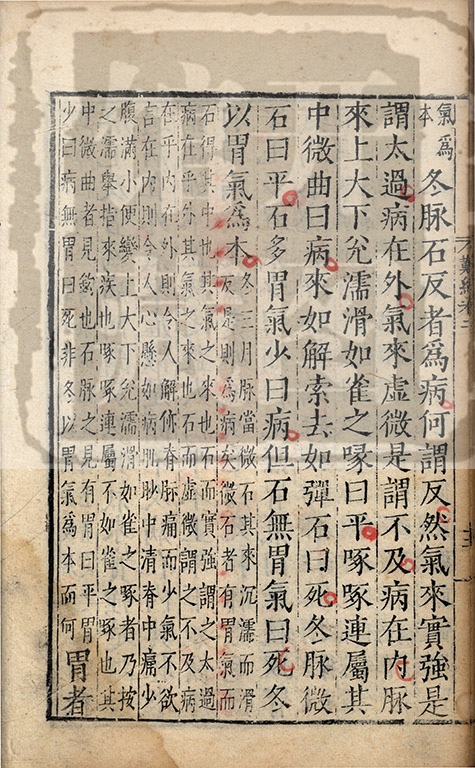 氣為本冬脉石反者為病何謂反然氣來實強是
謂太過病在外氣來虛微是謂不及病在内脉
來上大下兊濡滑如雀之喙曰平啄啄連屬其
中微曲曰病來如解索去如彈石曰死冬脉微
石曰平石多胃氣少曰病但石無胃氣曰死冬
以胃氣為本
冬三月脉當微石其來沉濡而滑
反是則為病矣微石者有胃氣而
石得其中也其氣之來也石而實強謂之太過
病在乎外其氣之來也石而虛微謂之不及病
在乎内在外則令人解㑊脊脉痛而少氣不欲
言在内則令人心懸如病飢䏚中清脊中痛少
腹滿小便變上大下兊濡滑如雀之啄者乃按
之濡舉指來疾也啄啄連屬不如雀之啄也其
中微曲者見鉤也石脉之見有胃曰平胃
少曰病無胃曰死非冬以胃氣為本而何
胃者